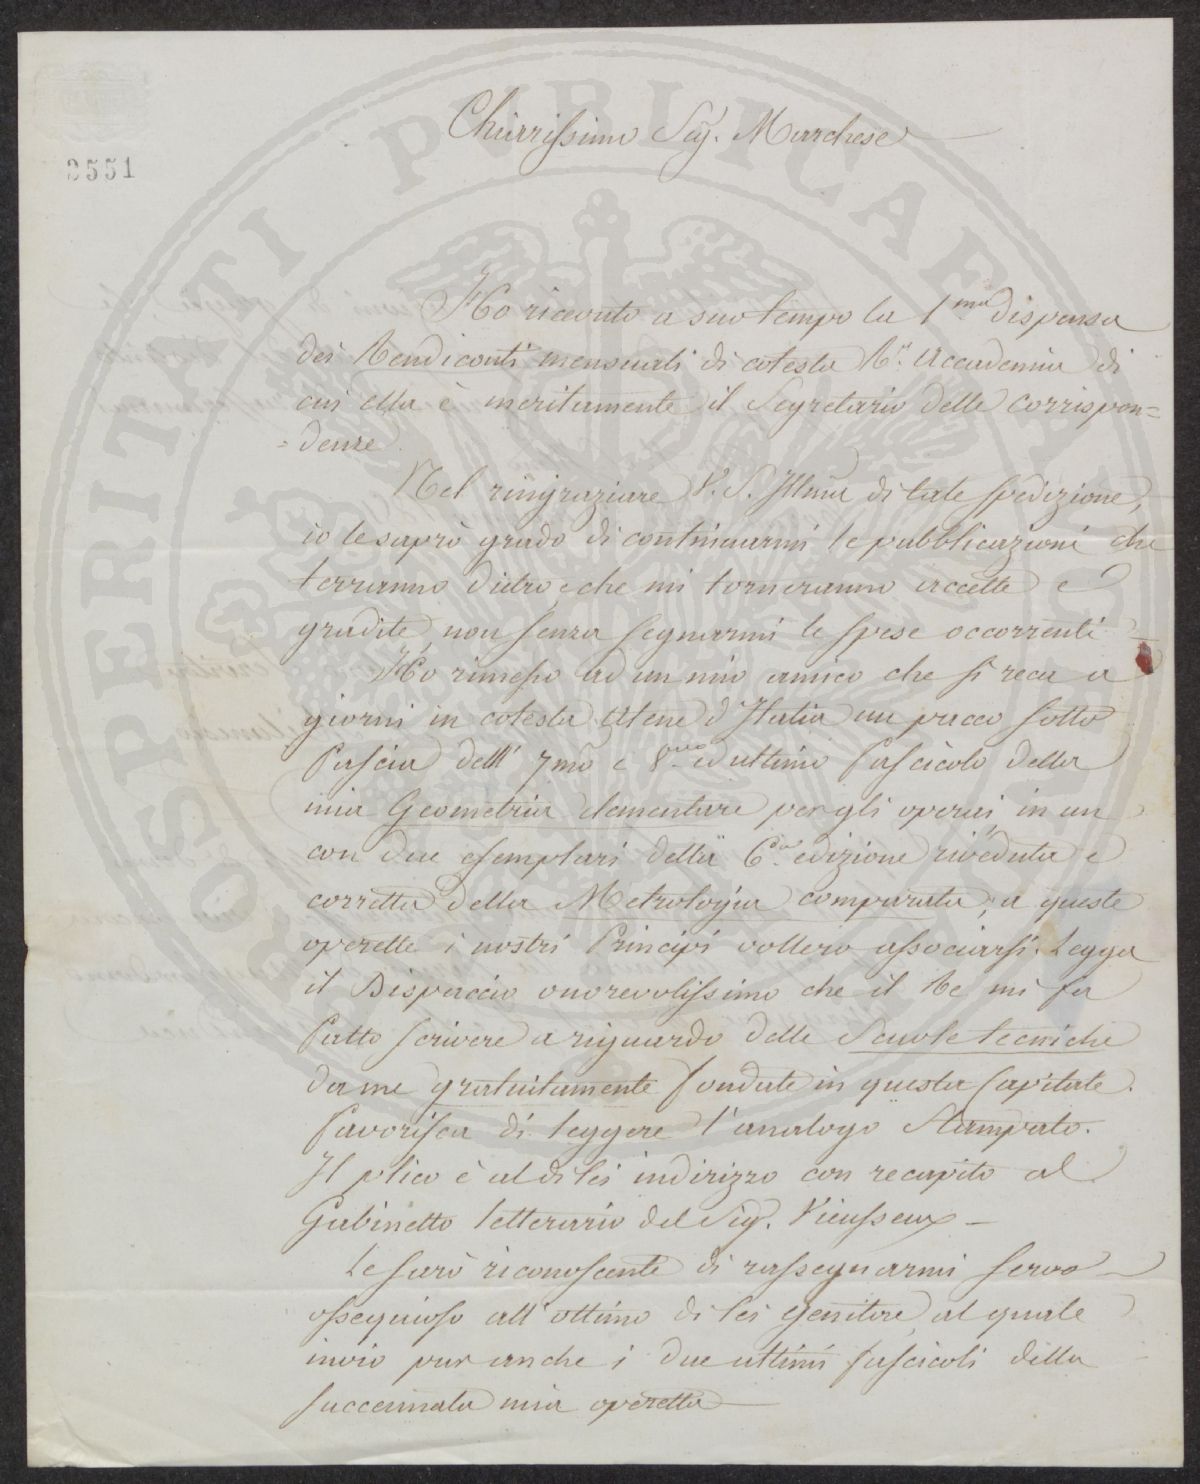 PROSPERITATI PUBLICAE AUGENDAE
3551
Chiarissimo Sig. Marchese
Ho ricevuto a suo tempo la 1ma dispensa
dei Rendiconti mensuali di cotesta R. Accademia di
cui ella è meritamente il Segretario delle corrispon=
=denze.
Nel ringraziare V. S. Illma di tale spedizione,
io le saprò grado di continuarmi le pubblicazioni che
terranno dietro e che mi torneranno accette e
gradite, non senza segnarmi le spese occorrenti
Ho rimesso ad un mio amico che si reca a
giorni in cotesta Atene d'Italia un pacco sotto
fascia dell' 7mo e 8vo ed ultimo fascicolo della
mia Geometria elementare per gli operai, in un
con due esemplari della 6a edizione riveduta e
corretta della Metrologia comparata; a queste
operette i nostri Principi vollero associarsi. Legga
il Dispaccio onorevolissimo che il Re mi fa
fatto scrivere a riguardo delle Scuole tecniche
da me gratuitamente fondate in questa Capitale.
Favorisca di leggere l'analogo stampato.
Il plico è al di lei indirizzo con recapito al
Gabinetto letterario del Sig. Vieusseux -
Le sarò riconoscente di rassegnarmi servo
ossequioso all' ottimo di lei Genitore, al quale
invio pur anche i due ultimi fascicoli della
succennata mia operetta